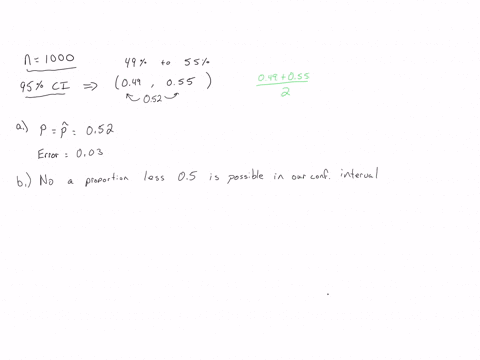 n = 1000
49% to 55%
95% CI ⇒ (0.49, 0.55)
0.52
0.49 + 0.55
2
a.) p = p̂ = 0.52
Error = 0.03
b.) No a proportion less 0.5 is possible in our conf. interval